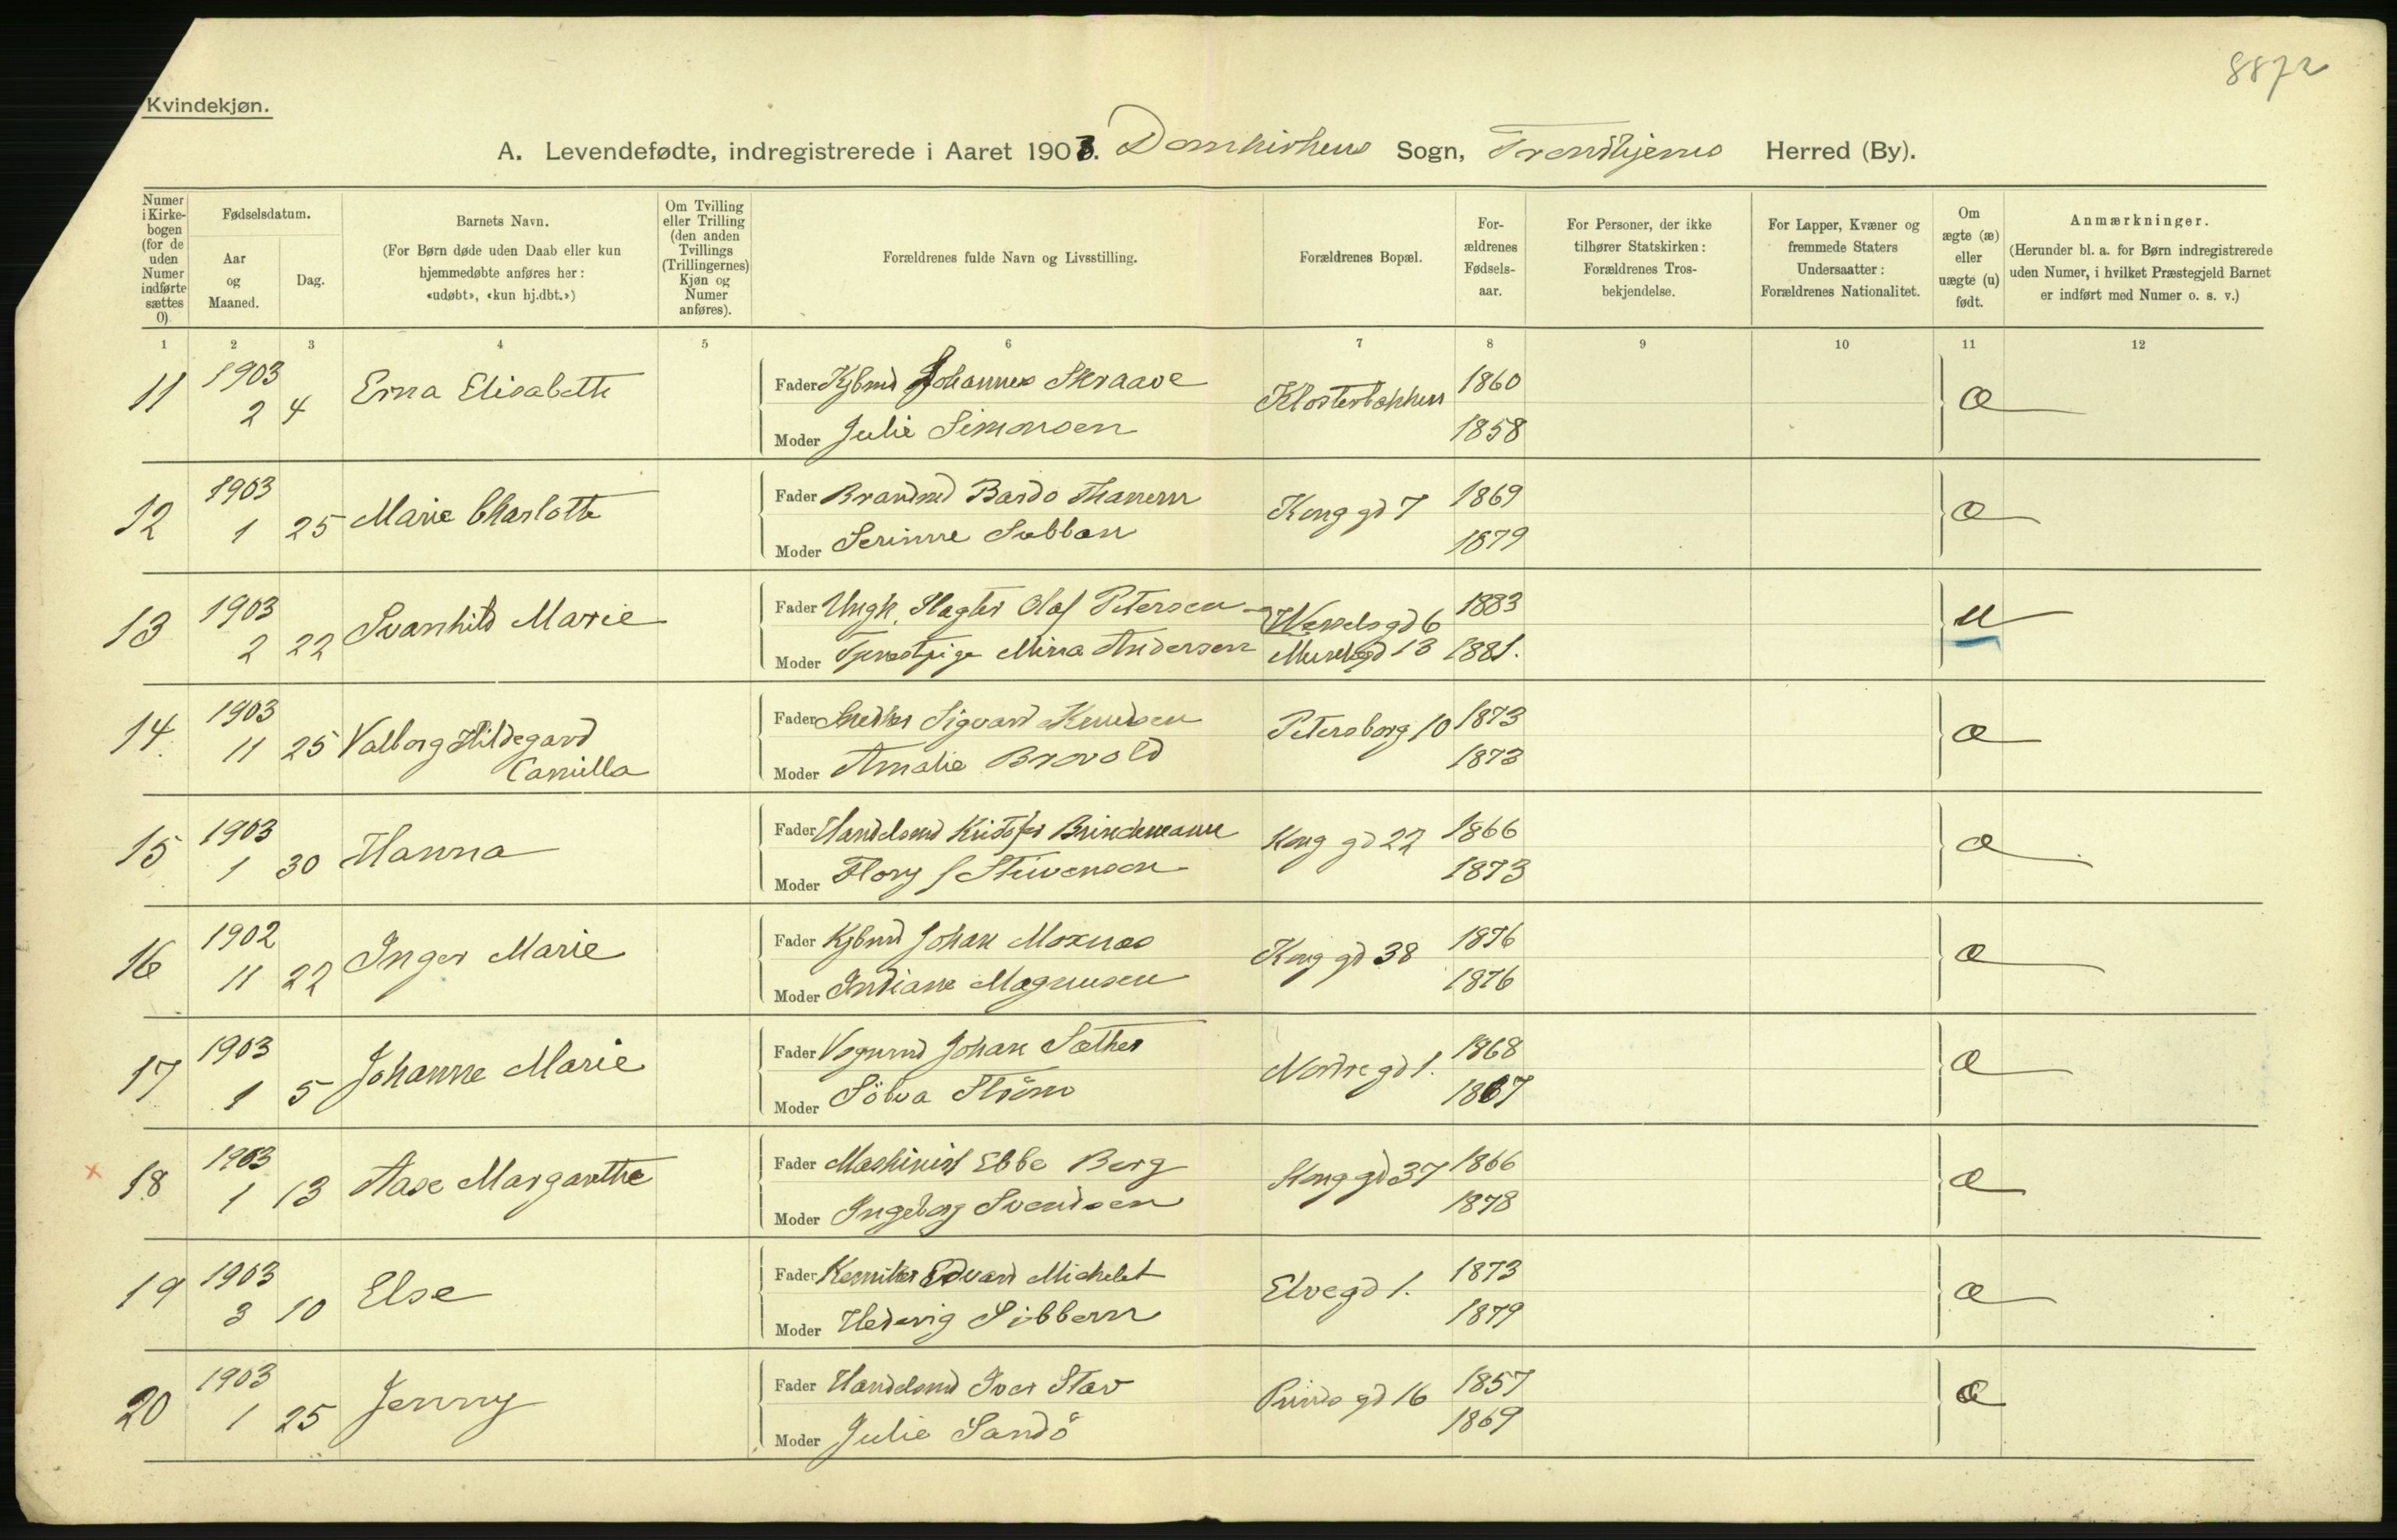 8872
Kvindekjøn.
A. Levendefødte, indregistrerede i Aaret 1903. Domkirkens Sogn, Trondhjems Herred (By).
Numer i Kirke-bogen (for de uden Numer indførte sættes 0)
Fødselsdatum.
Aar og Maaned.
Dag.
Barnets Navn.
(For Børn døde uden Daab eller kun hjemmedøbte anføres her: «udøbt», «kun hj.dbt.»)
Om Tvilling eller Trilling (den anden Tvillings (Trillingernes) Kjøn og Numer anføres).
Forældrenes fulde Navn og Livsstilling.
Forældrenes Bopæl.
For-ældrenes Fødsels-aar.
For Personer, der ikke tilhører Statskirken: Forældrenes Tros-bekjendelse.
For Lapper, Kvæner og fremmede Staters Undersaatter: Forældrenes Nationalitet.
Om ægte (æ) eller uægte (u) født.
Anmærkninger.
(Herunder bl. a. for Børn indregistrerede uden Numer, i hvilket Præstegjeld Barnet er indført med Numer o. s. v.)
1 2 3 4 5 6 7 8 9 10 11 12
11 1903 2 4 Erna Elisabeth Fader Kjbmd Johannes Skraave Klosterbakken 1860 æ
Moder Julie Simonsen 1858
12 1903 1 25 Marie Charlotte Fader Brandmd Bardo Thanem Kong gd 7 1869 æ
Moder Serinne Subban 1879
13 1903 2 22 Svanhild Marie Fader Ungk. Slagter Olaf Petersen Wessels gd 6 1883 u
Moder Tjenestpige Mina Andersen Munkegd 13 1881.
14 1903 11 25 Valborg Hildegard Camilla Fader Snedker Sigvard Knudsen Petersborg 10 1873 æ
Moder Amalie Brovold 1873
15 1903 1 30 Hanna Fader Handelsmd Kristofer Brindemann Kong gd 22 1866 æ
Moder Flory f Stuvensen 1873
16 1902 11 22 Inger Marie Fader Kjbmd Johan Moxnes Kong gd 38 1876 æ
Moder Indiane Magnusen 1876
17 1903 1 5 Johanne Marie Fader Vognmd Johan Sæther Nordre gd 1. 1868 æ
Moder Sölva Ström 1867
18 1903 1 13 Aase Margarethe Fader Maskinist Ebbe Berg Kong gd 37 1866 æ
Moder Ingeborg Svendsen 1878
19 1903 3 10 Else Fader Kemiker Edvard Michelet Elvegd 1. 1873 æ
Moder Hedevig Sibbern 1879
20 1903 1 25 Jenny Fader Handelsmd Iver Stav Prinds gd 16 1857 æ
Moder Julie Sandö 1869